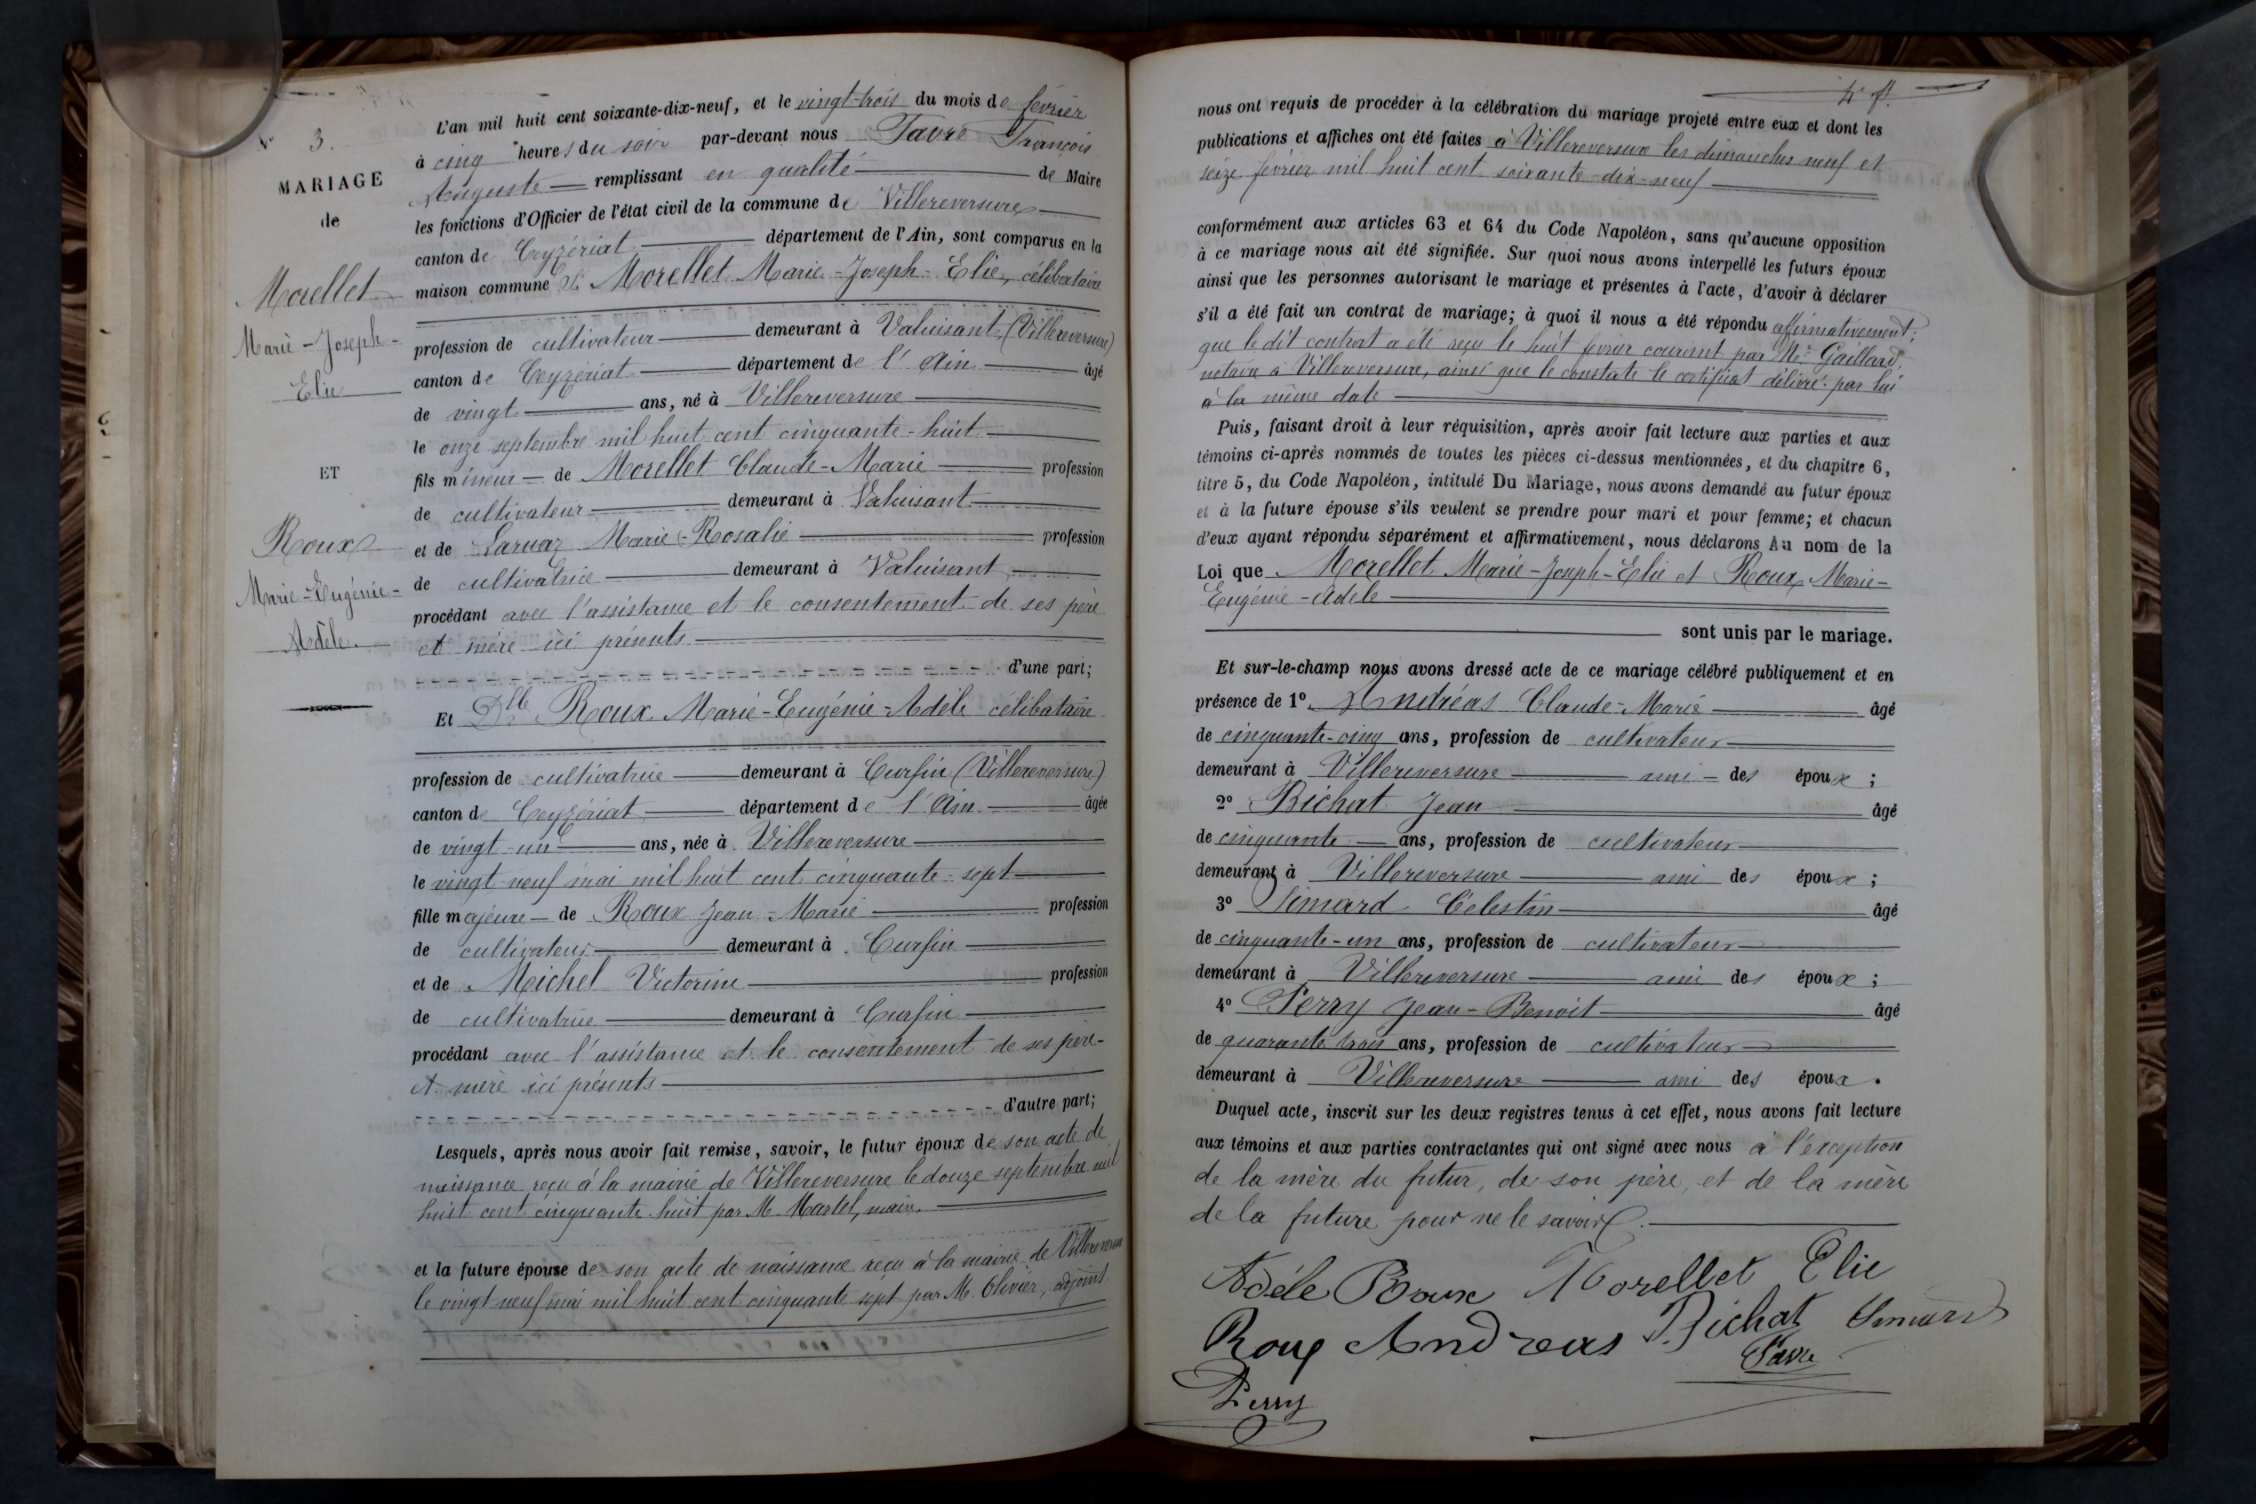 N° 3.
MARIAGE
de
Morellet
Marie-Joseph-
Elie
ET
Roux
Marie-Eugénie-
Adèle.
L'an mil huit cent soixante-dix-neuf, et le vingt-trois du mois de février
à cinq heures du soir par-devant nous Favre François
Auguste remplissant en qualité de Maire
les fonctions d'Officier de l'état civil de la commune de Villereversure
canton de Ceyzériat département de l'Ain, sont comparus en la
maison commune Sr Morellet Marie-Joseph-Elie, célibataire
profession de cultivateur demeurant à Valuisant (Villereversure)
canton de Ceyzériat département de l'Ain âgé
de vingt ans, né à Villereversure
le onze septembre mil huit cent cinquante-huit
fils mineur de Morellet Claude-Marie profession
de cultivateur demeurant à Valuisant
et de Laruaz Marie-Rosalie profession
de cultivatrice demeurant à Valuisant
procédant avec l'assistance et le consentement de ses père
et mère ici présents
d'une part;
Et Dlle Roux Marie-Eugénie-Adèle célibataire
profession de cultivatrice demeurant à Curfin (Villereversure)
canton de Ceyzériat département de l'Ain âgée
de vingt-un ans, née à Villereversure
le vingt neuf mai mil huit cent cinquante-sept
fille majeure de Roux Jean-Marie profession
de cultivateur demeurant à Curfin
et de Michel Victorine profession
de cultivatrice demeurant à Curfin
procédant avec l'assistance et le consentement de ses père
et mère ici présents
d'autre part;
Lesquels, après nous avoir fait remise, savoir, le futur époux de son acte de
naissance reçu à la mairie de Villereversure le douze septembre mil
huit cent cinquante huit par M. Martel, maire.
et la future épouse de son acte de naissance reçu à la mairie de Villereversure
le vingt neuf mai mil huit cent cinquante sept par M. Olivier, adjoint
nous ont requis de procéder à la célébration du mariage projeté entre eux et dont les
publications et affiches ont été faites à Villereversure les dimanches neuf et
seize février mil huit cent soixante-dix-neuf
conformément aux articles 63 et 64 du Code Napoléon, sans qu'aucune opposition
à ce mariage nous ait été signifiée. Sur quoi nous avons interpellé les futurs époux
ainsi que les personnes autorisant le mariage et présentes à l'acte, d'avoir à déclarer
s'il a été fait un contrat de mariage; à quoi il nous a été répondu affirmativement;
que le dit contrat a été reçu le huit février courant par Me Gaillard,
notaire à Villereversure, ainsi que le constate le certificat délivré par lui
à la même date
Puis, faisant droit à leur réquisition, après avoir fait lecture aux parties et aux
témoins ci-après nommés de toutes les pièces ci-dessus mentionnées, et du chapitre 6,
titre 5, du Code Napoléon, intitulé Du Mariage, nous avons demandé au futur époux
et à la future épouse s'ils veulent se prendre pour mari et pour femme; et chacun
d'eux ayant répondu séparément et affirmativement, nous déclarons Au nom de la
Loi que Morellet Marie-Joseph-Elie et Roux Marie-
Eugénie-Adèle
sont unis par le mariage.
Et sur-le-champ nous avons dressé acte de ce mariage célébré publiquement et en
présence de 1° Andréas Claude-Marie âgé
de cinquante-cinq ans, profession de cultivateur
demeurant à Villereversure ami des époux;
2° Bichat Jean âgé
de cinquante ans, profession de cultivateur
demeurant à Villereversure ami des époux;
3° Simard Célestin âgé
de cinquante-un ans, profession de cultivateur
demeurant à Villereversure ami des époux;
4° Perry Jean-Benoit âgé
de quarante trois ans, profession de cultivateur
demeurant à Villereversure ami des époux.
Duquel acte, inscrit sur les deux registres tenus à cet effet, nous avons fait lecture
aux témoins et aux parties contractantes qui ont signé avec nous à l'exception
de la mère du futur, de son père, et de la mère
de la future pour ne le savoir.
Adèle Roux Morellet Elie
Roux Andreas Bichat Simard
Favre
Perry